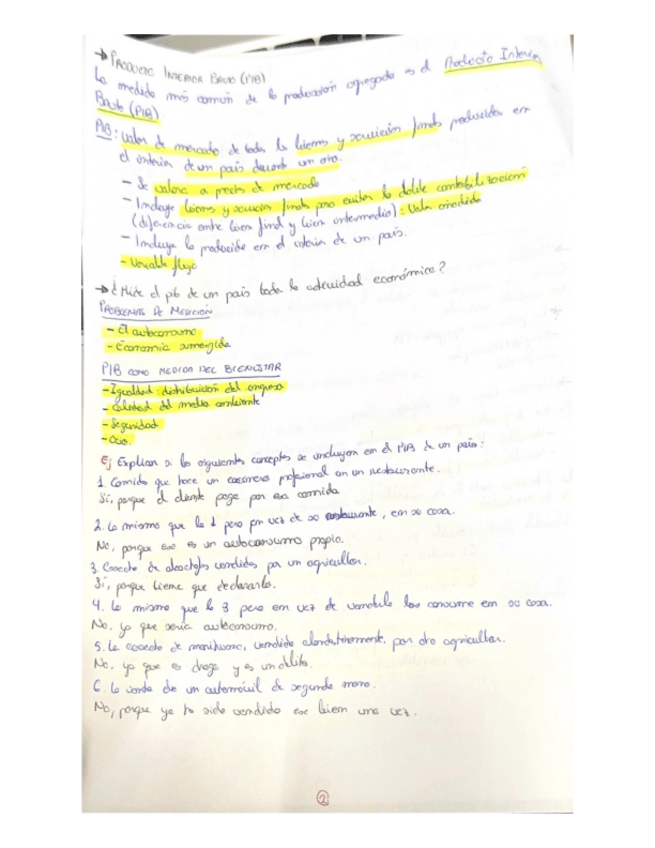 → PRODUCTO INTERIOR BRUTO (PIB)
La medida más común de la producción agregada es el Producto Interior
Bruto (PIB)
PIB: valor de mercado de todos los bienes y servicios finales producidos en
el interior de un país durante un año.
- Se valora a precios de mercado
- Incluye bienes y servicios finales para evitar la doble contabilización
(diferencia entre bien final y bien intermedio): Valor añadido
- Incluye lo producido en el interior de un país.
- Variable flujo
→ ¿Mide el pib de un país toda la actividad económica?
PROBLEMAS DE MEDICIÓN
- El autoconsumo
- Economía sumergida
PIB COMO MEDIDA DEL BIENESTAR
- Igualdad: distribución del ingreso
- Calidad del medio ambiente
- Seguridad
- Ocio.
Ej Explicar si los siguientes conceptos se incluyen en el PIB de un país:
1. Comida que hace un cocinero profesional en un restaurante.
Sí, porque el cliente paga por esa comida
2. Lo mismo que la 1 pero en vez de su restaurante, en su casa.
No, porque ese es un autoconsumo propio.
3. Cosecha de alcachofas vendidas por un agricultor.
Sí, porque tiene que declararlo.
4. Lo mismo que la 3 pero en vez de venderlo las consume en su casa.
No, ya que sería autoconsumo.
5. La cosecha de marihuana, vendida clandestinamente, por otro agricultor.
No, ya que es droga y es un delito.
6. La venta de un automóvil de segunda mano.
No, porque ya ha sido vendido ese bien una vez.
2